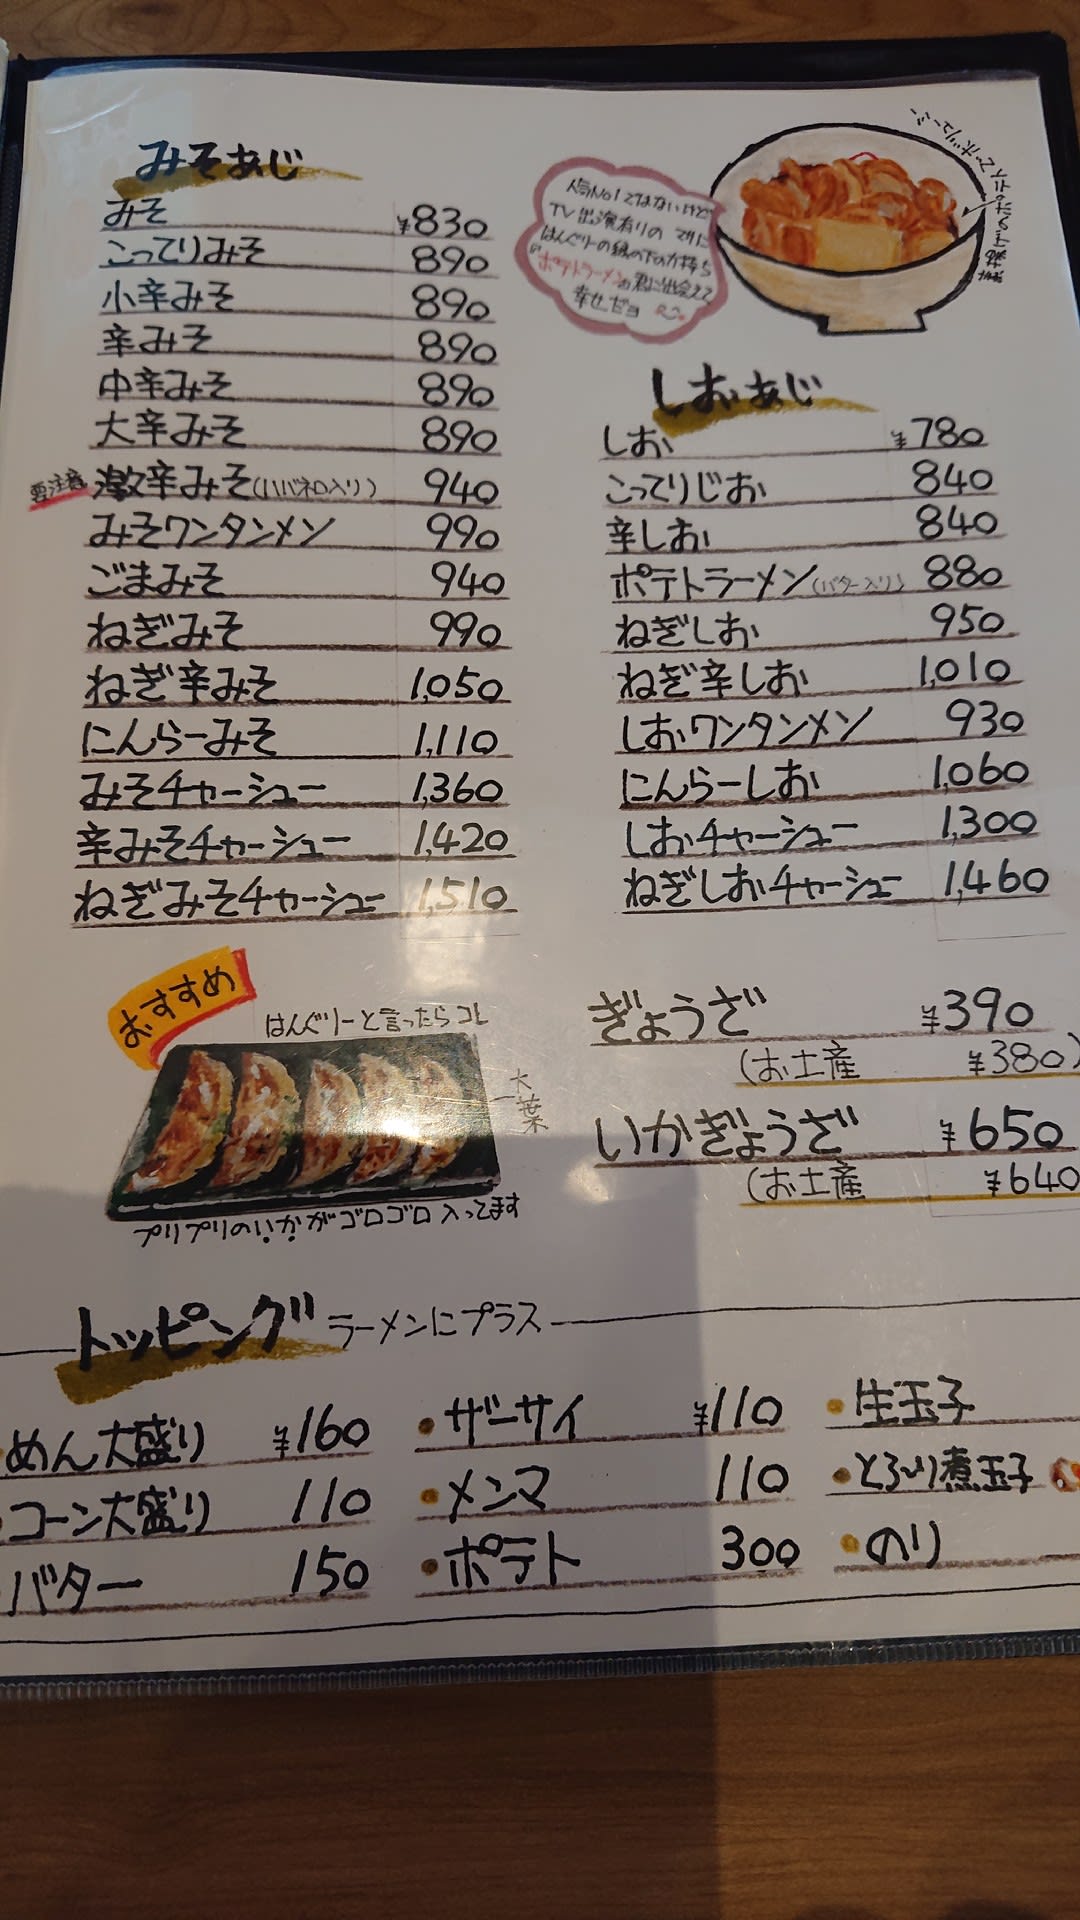 みそあじ
みそ ¥830
こってりみそ 890
小辛みそ 890
辛みそ 890
中辛みそ 890
大辛みそ 890
要注意 激辛みそ(ハバネロ入り) 940
みそワンタンメン 990
ごまみそ 940
ねぎみそ 990
ねぎ辛みそ 1,050
にんらーみそ 1,110
みそチャーシュー 1,360
辛みそチャーシュー 1,420
ねぎみそチャーシュー 1,510
人気No1ではないけど
TV出演有りの マサに
はんぐりーの縁の下の力持ち
『ポテトラーメン』君に出会えて
幸せだョ
素揚げのポテトでボリューミー
しおあじ
しお ¥780
こってりじお 840
辛しお 840
ポテトラーメン(バター入り) 880
ねぎしお 950
ねぎ辛しお 1,010
しおワンタンメン 930
にんらーしお 1,060
しおチャーシュー 1,300
ねぎしおチャーシュー 1,460
おすすめ
はんぐりーと言ったらコレ
大葉
プリプリのいかがゴロゴロ入ってます
ぎょうざ ¥390
(お土産 ¥380)
いかぎょうざ ¥650
(お土産 ¥640
トッピング ラーメンにプラス
めん大盛り ¥160
コーン大盛り 110
バター 150
ザーサイ ¥110
メンマ 110
ポテト 300
生玉子
とろ〜り煮玉子
のり